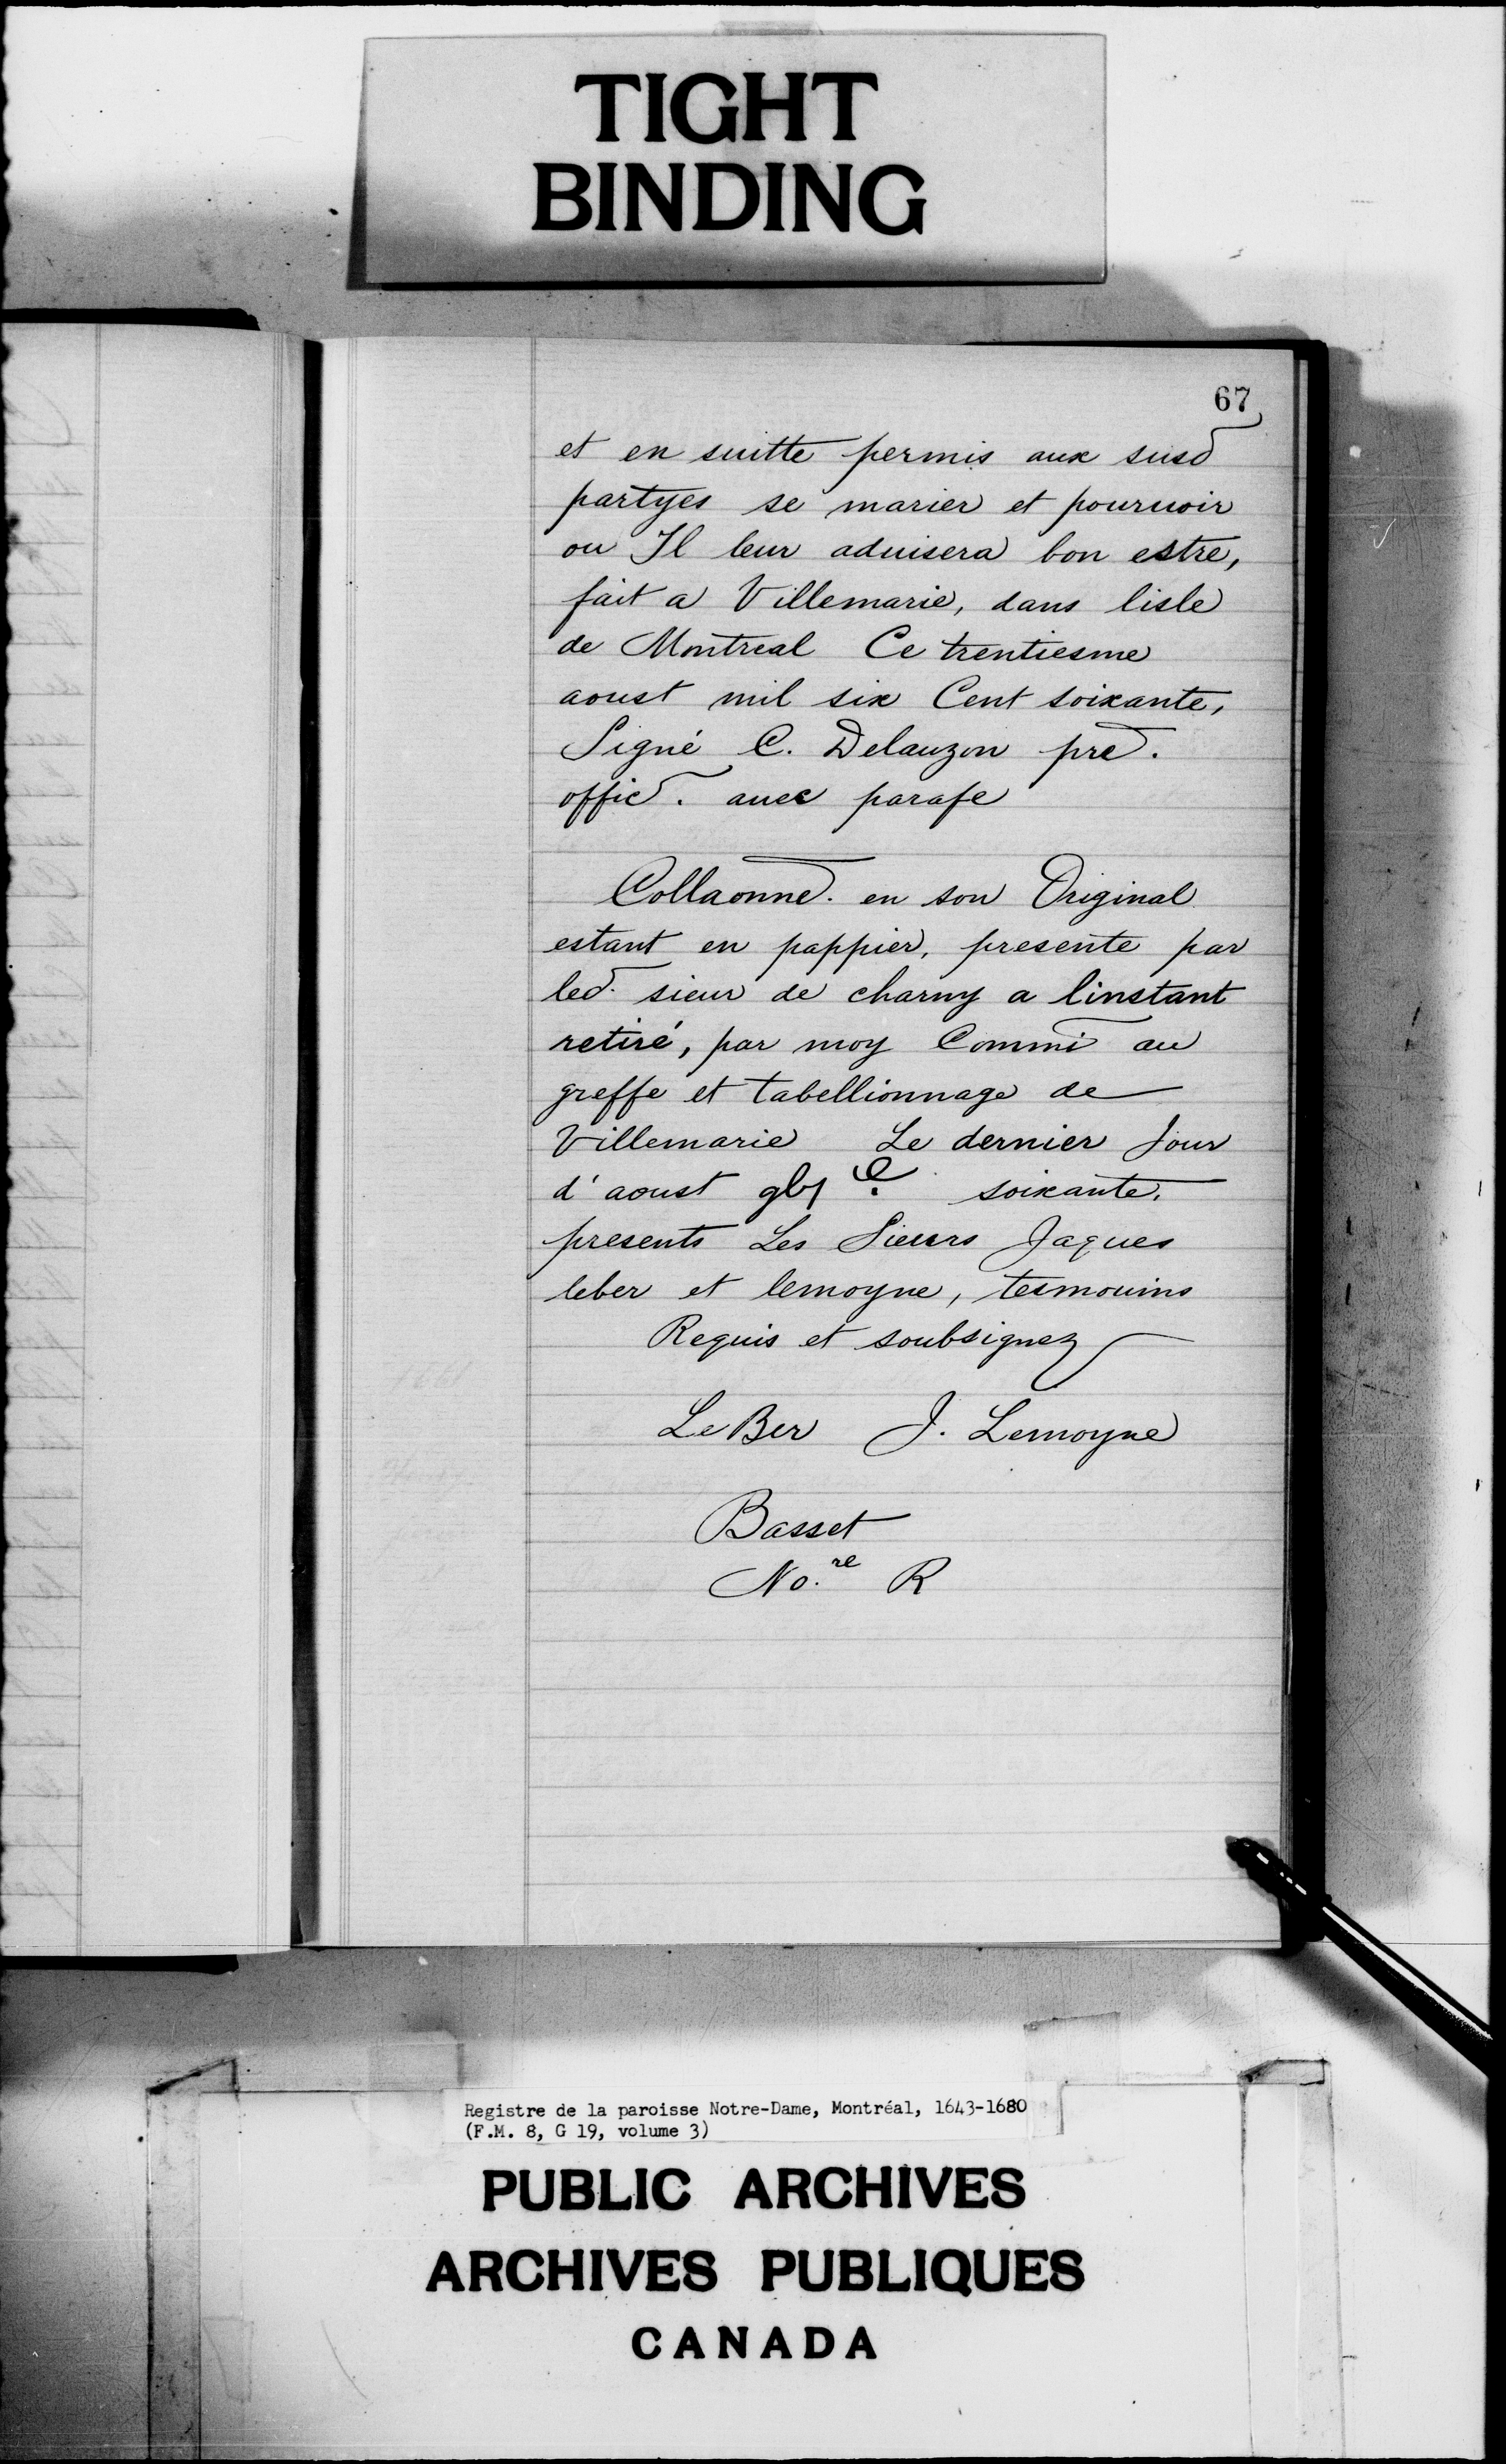 TIGHT
BINDING
67
et en suitte permis aux susd
partyes se marier et pouruoir
ou Il leur aduisera bon estre,
fait a Villemarie, dans lisle
de Montreal Ce trentiesme
aoust mil six Cent soixante,
Signé C. Delauzon pre.
offic. auec parafe
Collaonne. en son Original
estant en pappier, presente par
led. sieur de charny a linstant
retiré, par moy Commi au
greffe et tabellionnage de
Villemarie Le dernier Jour
d'aoust soixante.
presents Les Sieurs Jaques
leber et lemoyne, tesmouins
Requis et soubsignez
LeBer J. Lemoyne
Basset
No.re R
Registre de la paroisse Notre-Dame, Montréal, 1643-1680
(F.M. 8, G 19, volume 3)
PUBLIC ARCHIVES
ARCHIVES PUBLIQUES
CANADA